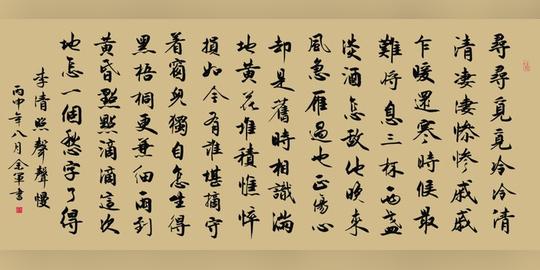 尋尋覓覓冷冷清
清凄凄慘慘戚戚
乍暖還寒時候最
難將息三杯兩盞
淡酒怎敵他晚來
風急雁過也正傷心
却是舊時相識滿
地黃花堆積憔悴
損如今有誰堪摘守
着窗兒獨自怎生得
黑梧桐更兼細雨到
黃昏點點滴滴這次
地怎一個愁字了得
李清照聲聲慢
丙申年八月軍書